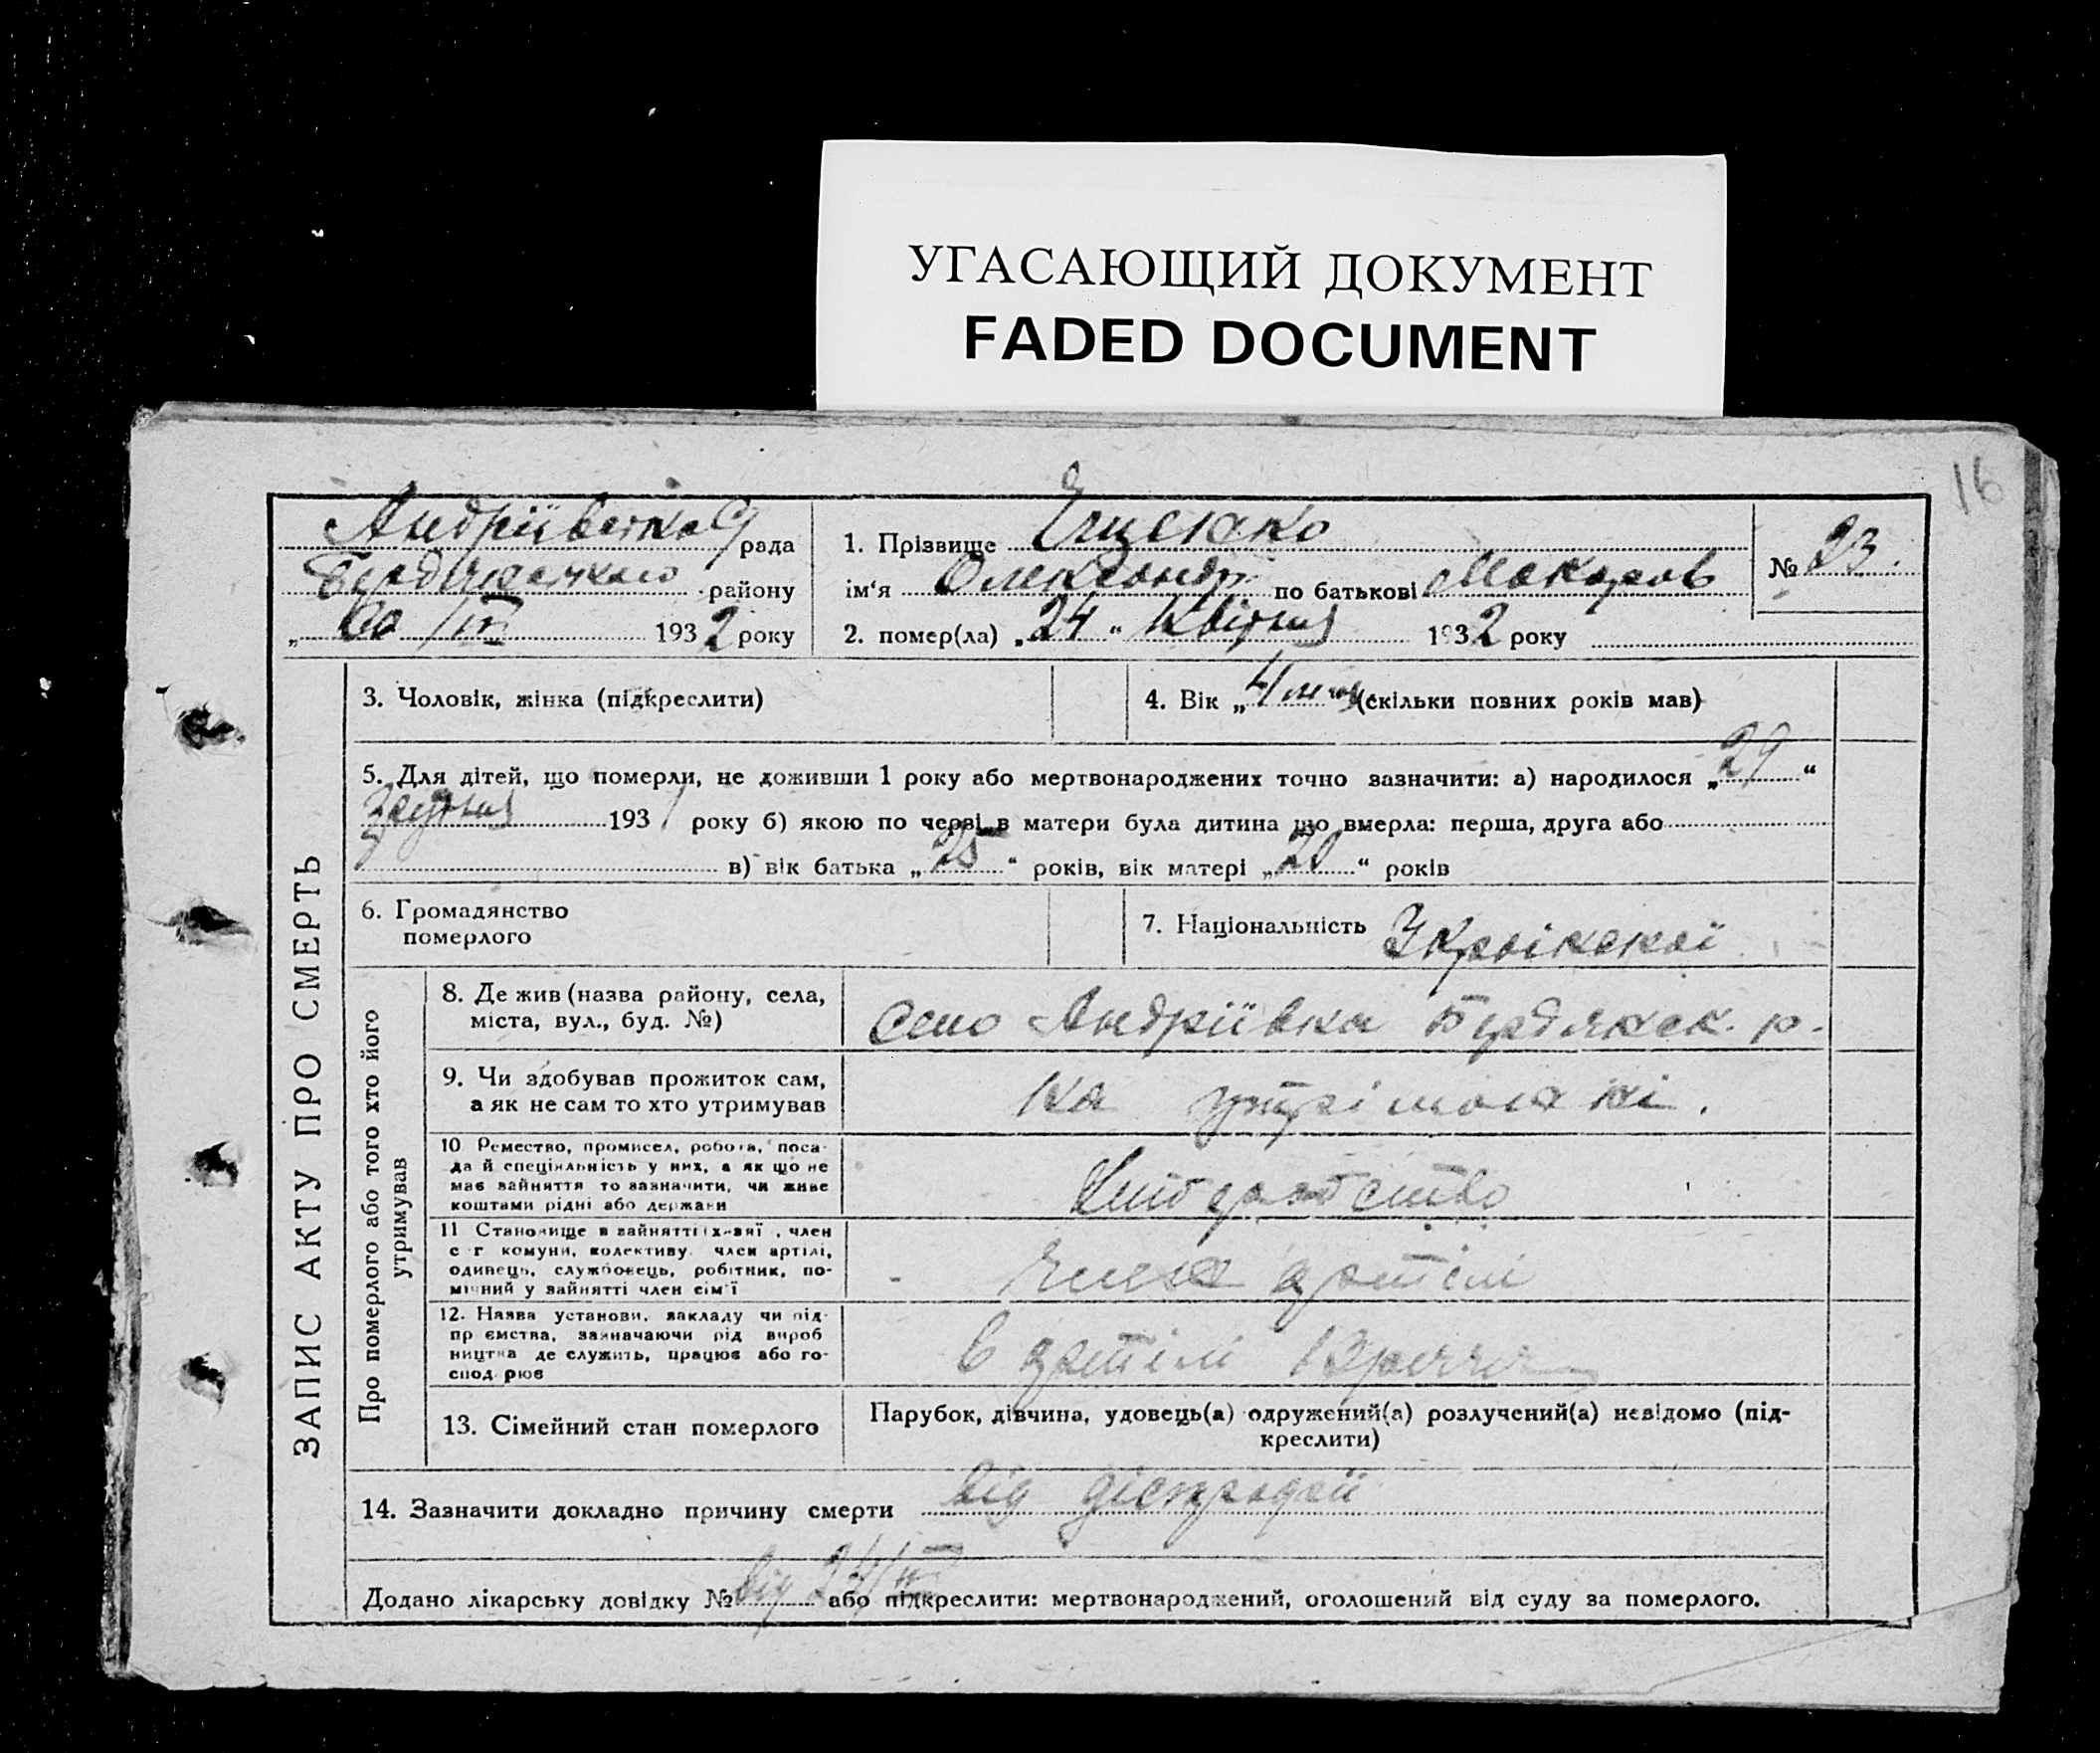 УГАСАЮЩИЙ ДОКУМЕНТ
FADED DOCUMENT
16
рада
району
193 2 року
1. Прізвище
ім‘я Олександр по батькові Макаров
2. помер(ла) „ 24 “ Квітня 1932 року
№ 23.
ЗАПИС АКТУ ПРО СМЕРТЬ
3. Чоловік, жінка (підкреслити)
4. Вік „ 4 “ (скільки повних років мав)
5. Для дітей, що померли, не доживши 1 року або мертвонароджених точно зазначити: а) народилося „ 29 “
193 1 року б) якою по черзі в матери була дитина що вмерла: перша, друга або
в) вік батька „ 25 “ років, вік матері „ 20 “ років
6. Громадянство
померлого
7. Національність
Про померлого або того хто його
утримував
8. Де жив (назва району, села,
міста, вул., буд. №)
Село Андріївка Бердянск. р.
9. Чи здобував прожиток сам,
а як не сам то хто утримував
на утріманні.
10 Ремество, промисел, робота, поса-
да й спеціяльність у них, а як що не
має зайняття то зазначити, чи живе
коштами рідні або держави
Хліборобство
11 Становище в зайнятті , член
с г комуни, колективу член артілі,
одинець, службовець, робітник, по-
мічний у зайнятті член сім‘ї
член артілі
12. Назва установи, закладу чи під-
пр ємства, зазначаючи рід вироб
ництва де служить, працює або го-
спод рює
в артілі
13. Сімейний стан померлого
Парубок, дівчина, удовець(а) одружений(а) розлучений(а) невідомо (під-
креслити)
14. Зазначити докладно причину смерти від
Додано лікарську довідку № від 24/IV або підкреслити: мертвонароджений, оголошений від суду за померлого.